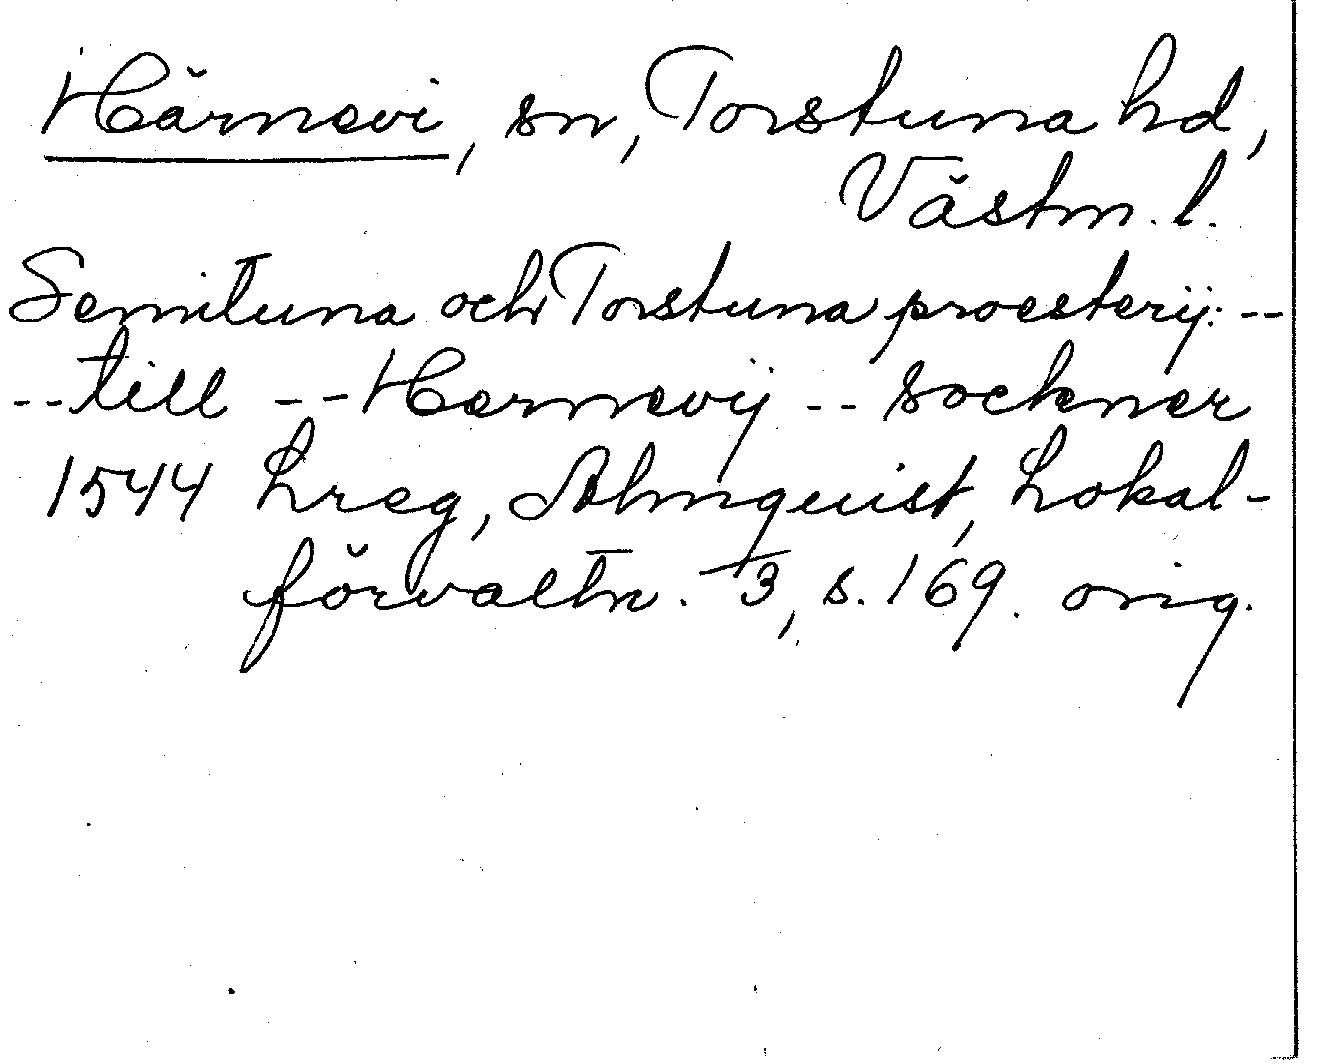 Härnevi, sn, Torstuna hd,
Västm. l.
Semituna och Torstuna proesterij: --
-- till -- Hernevij -- sockner
1544 Lreg, Almquist, Lokal-
förvaltn. 3, s. 169. orig.